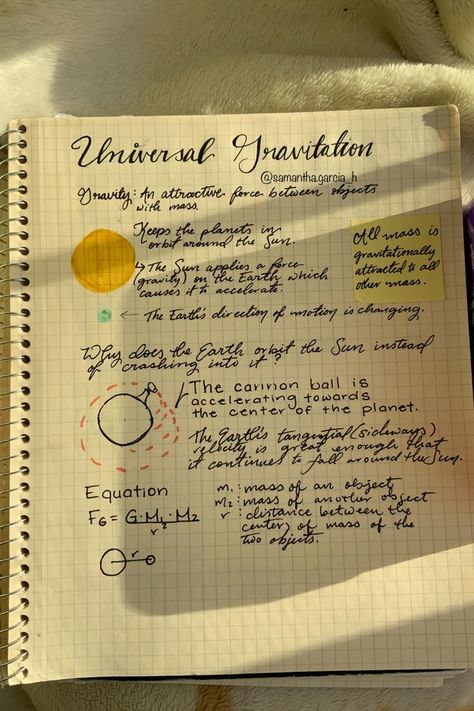 Universal Gravitation
@samantha.garcia_h
Gravity: An attractive force between objects
with mass.
Keeps the planets in
orbit around the Sun.
↳ The Sun applies a force
(gravity) on the Earth which
causes it to accelerate.
← The Earth's direction of motion is changing.
All mass is
gravitationally
attracted to all
other mass.
Why does the Earth orbit the Sun instead
of crashing into it?
The cannon ball is
accelerating towards
the center of the planet.
The Earth's tangential (sideways)
velocity is great enough that
it continues to fall around the Sun.
Equation
F_G = G·M₁·M₂
r²
r
m₁: mass of an object
m₂: mass of another object
r: distance between the
center) of mass of the
two objects.